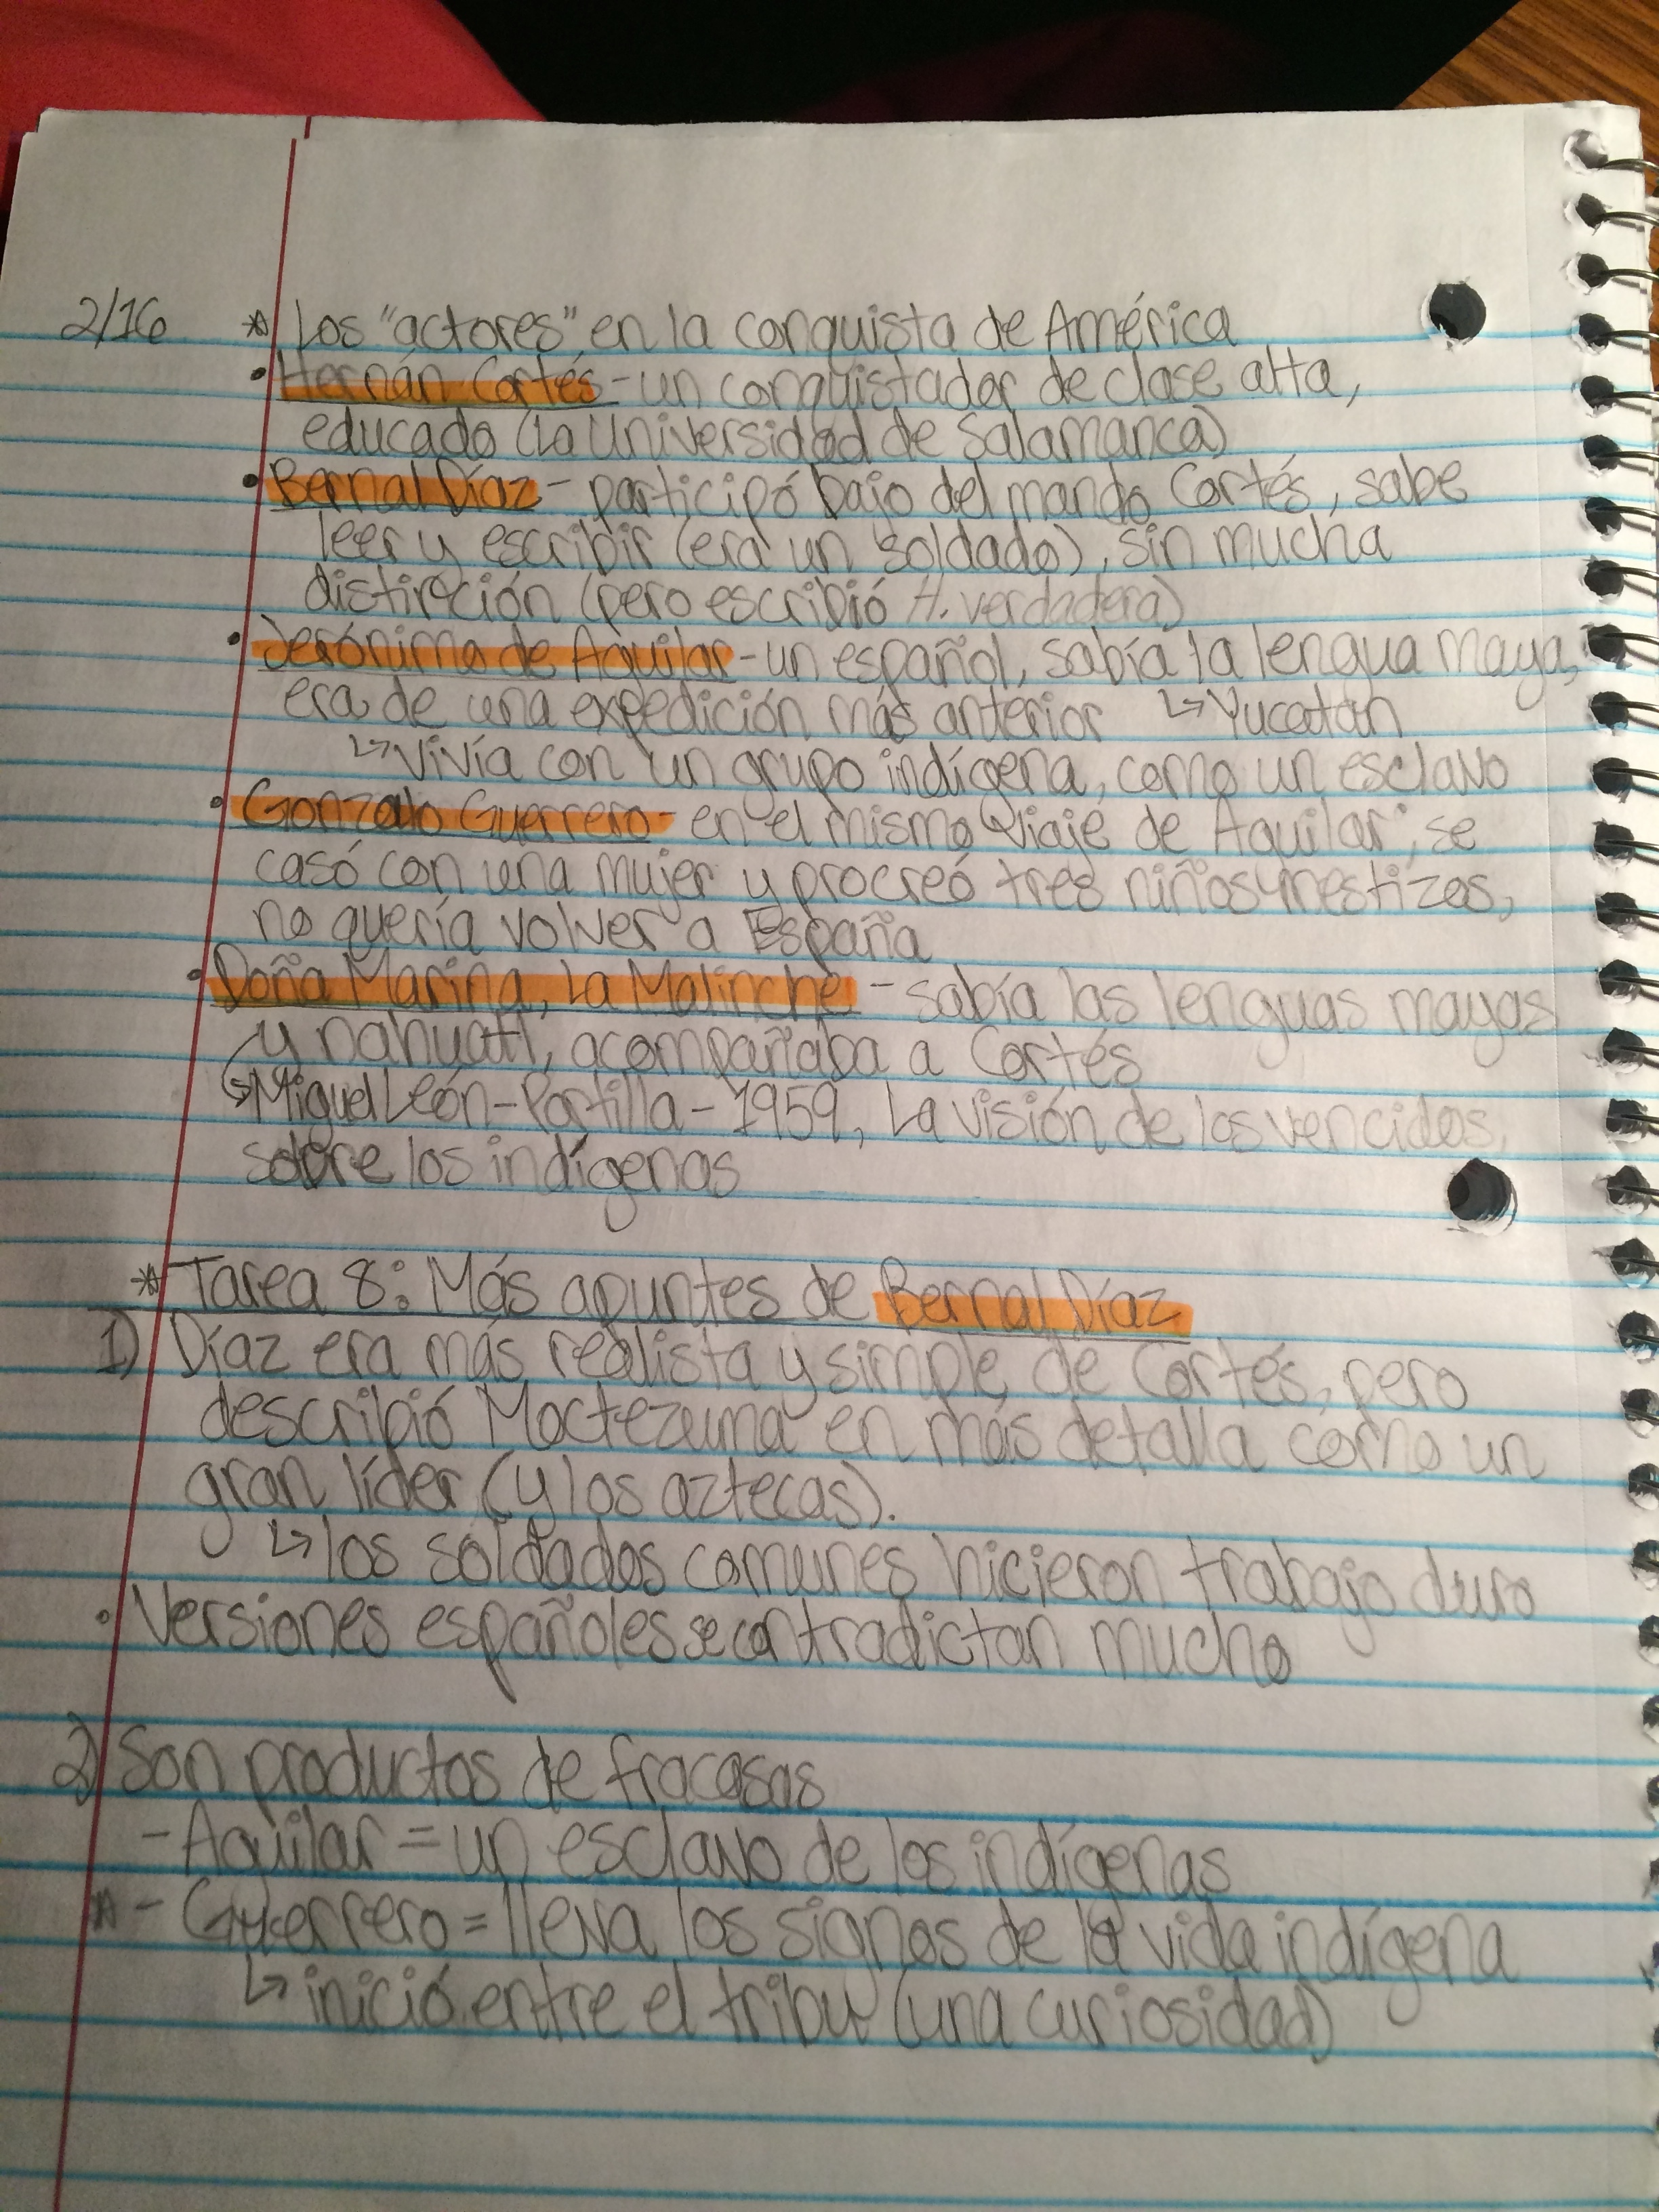 2/16 * Los "actores" en la conquista de América
• Hernán Cortés - un conquistador de clase alta,
educado (La Universidad de Salamanca)
• Bernal Díaz - participó bajo del mando Cortés, sabe
leer y escribir (era un soldado), sin mucha
distinción (pero escribió H. verdadera)
• Jerónimo de Aguilar - un español, sabía la lengua maya,
era de una expedición más anterior ↳ Yucatan
↳ Vivía con un grupo indígena, como un esclavo
• Gonzalo Guerrero - en el mismo viaje de Aguilar, se
casó con una mujer y procreó tres niños mestizos,
no quería volver a España
• Doña Marina, La Malinche - sabía las lenguas mayas
y nahuatl, acompañaba a Cortés
↳ Miguel León-Portilla - 1959, La visión de los vencidos,
sobre los indígenas
* Tarea 8: Más apuntes de Bernal Díaz
1) Díaz era más realista y simple de Cortés, pero
describió Moctezuma en más detalla como un
gran líder (y los aztecas).
↳ los soldados comunes hicieron trabajo duro
• Versiones españoles se contradictan mucho
2) Son productos de fracasas
- Aguilar = un esclavo de los indígenas
* - Guerrero = lleva los signos de la vida indígena
↳ inició entre el tribu (una curiosidad)